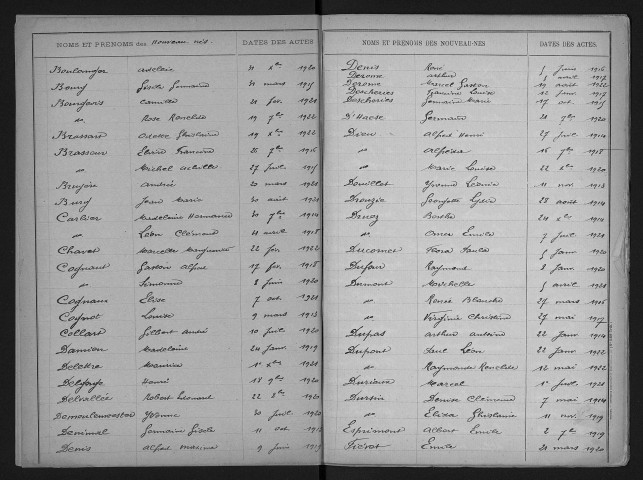 NOMS ET PRENOMS des nouveau-nés. DATES DES ACTES
Boulanger Adelaïde 31 Xbre 1920
Boury Gisèle Germaine 31 mars 1915
Bourgeois Camille 21 fev. 1921
" Rose Roneldée 19 7bre 1922
Brassart Ghislaine 19 Xbre 1922
Brasseur Francine 26 7bre 1916
" Michel Achille 27 Juil. 1915
Bruyère André 20 mars 1921
Bury Jean Marie 30 août 1921
Carlier Madeleine Hermance 30 7bre 1914
" Léon Clément 21 avril 1918
Chavat Marcelle Marguerite 22 fev. 1922
Cognaut Gaston Alfred 17 fev. 1918
" Simonne 8 Juin 1920
Cognaux Elise 7 oct. 1921
Cognot Louise 9 mars 1913
Collart Gilbert André 10 Juil. 1920
Damien Madeleine 24 Janv. 1919
Delcitre Maurice 1er Xbre 1921
Delfosse Henri 18 9bre 1920
Delvallée Robert Léonard 22 1920
Demeulemeester Yvonne 30 Juil. 1920
Denimal Germaine Gisèle 11 oct. 1913
Denis Alfred Maxime 9 Juin 1915
NOMS ET PRENOMS DES NOUVEAU-NÉS DATES DES ACTES
Denis René 5 Juin 1916
Derome Arthur 5 avril 1917
Derome Marcel Gaston 19 août 1922
Descheries Francine Louise 12 Juin 1915
Descheries Germaine Marie 17 oct. 1915
D'Haese Germaine 21 7bre 1920
Dieu Alfred Henri 27 Juil. 1914
" Alphéda 16 7bre 1918
" Marie Louise 22 Xbre 1920
Douillet Yvonne Léonie 11 nov. 1913
Drouzie Georgette Lydia 28 août 1914
Druez Berthe 24 Xbre 1914
" Omer Emile 7 Juil. 1921
Ducornet Flora Paula 5 Janv. 1920
Dufour Raymond 8 Janv. 1920
Dumont Marcelle 5 avril 1921
" Renée Blanche 27 mars 1916
" Virginie Christine 27 mai 1917
Dupas Arthur Antoine 22 Janv. 1914
Dupont Paul Léon 22 Janv. 1922
" Raymonde Roneldée 12 mai 1922
Durieux Marcel 1er Juil. 1921
Dursin Denise Clémence 7 mai 1914
" Eliza Ghislaine 11 nov. 1919
Esprimont Albert Emile 2 7bre 1919
Fiévet Emile 21 mars 1920